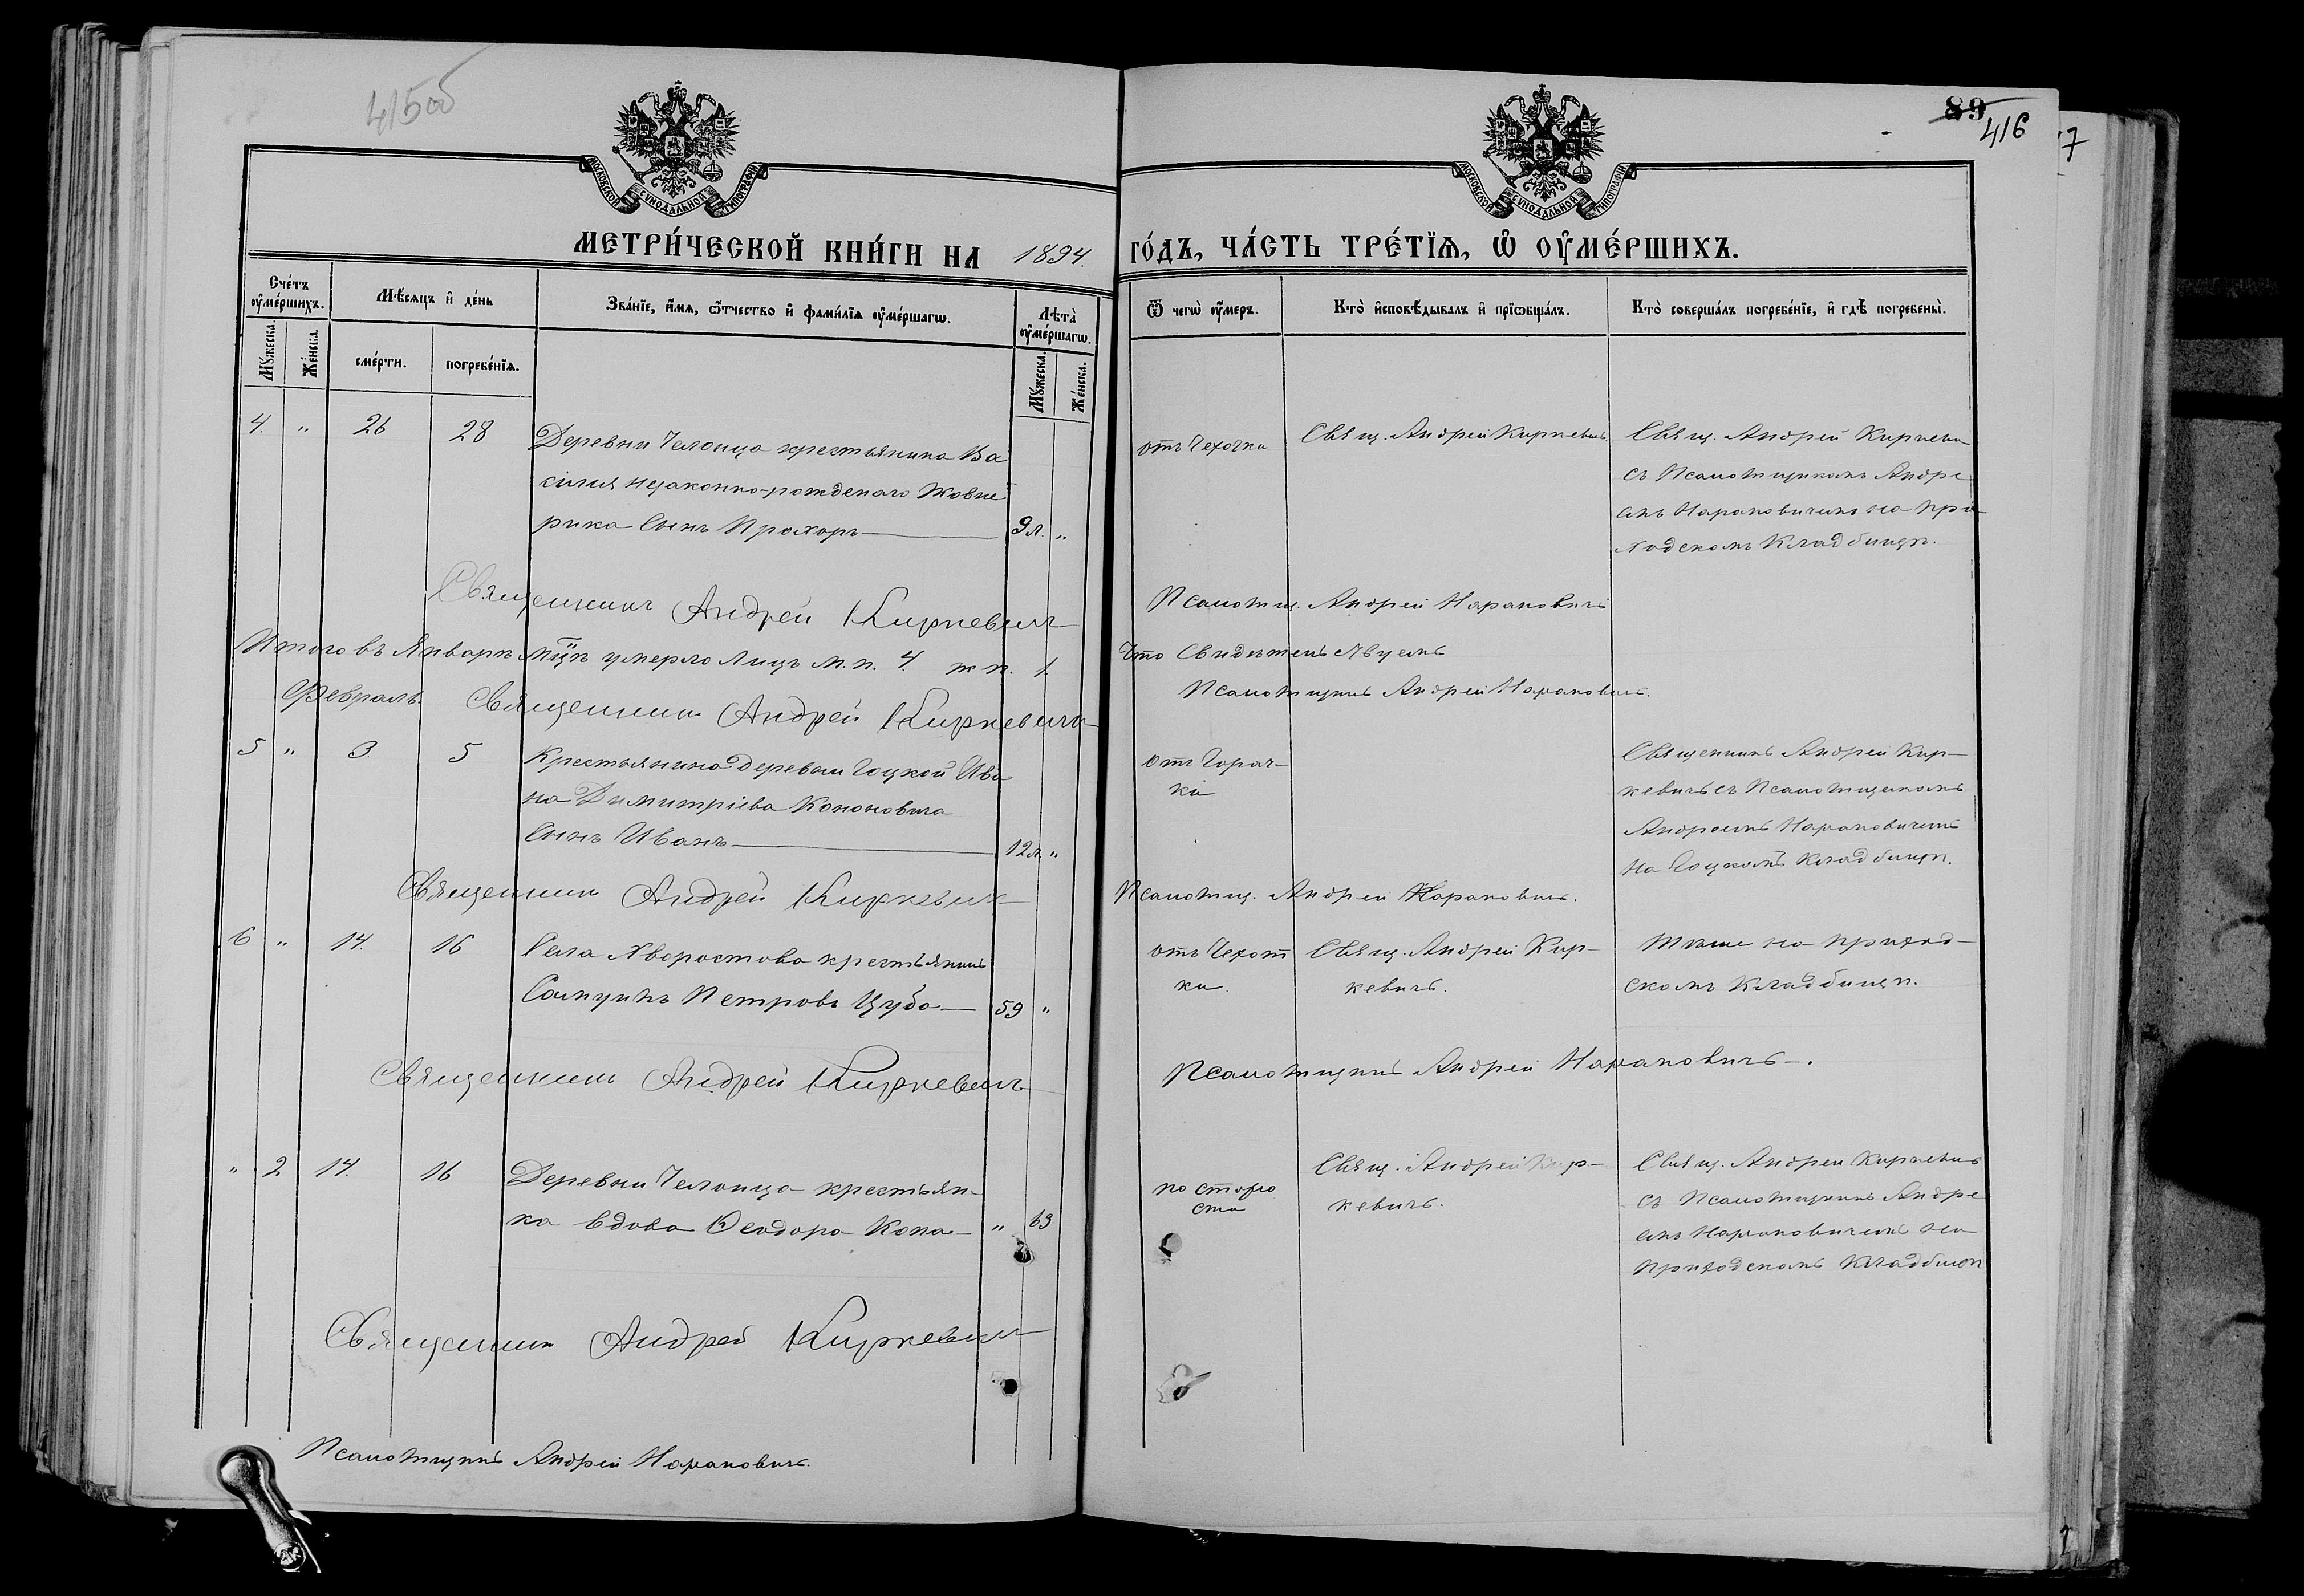 415об
89
416
7
МОСКОВСКОЙ СѴНОДАЛЬНОЙ ТИПОГРАФІИ
МОСКОВСКОЙ СѴНОДАЛЬНОЙ ТИПОГРАФІИ
МЕТРИ́ЧЕСКОЙ КНИ́ГИ НА 1894. ГО́ДЪ, ЧА́СТЬ ТРЕ́ТІѦ, Ѡ҆ ОУ҆МЕ́РШИХЪ.
Сче́тъ оу҆ме́ршихъ.
Мꙋ́жеска.
Же́нска.
Мѣ́сѧцъ и҆ де́нь
сме́рти.
погребе́нїѧ.
Зва́нїе, и҆́мѧ, ѻ҆́тчество и҆ фами́лїѧ оу҆ме́ршагѡ.
Лѣта̀ оу҆ме́ршагѡ.
Мꙋ́жеска.
Же́нска.
Ѿ чегѡ̀ оу҆́меръ.
Кто̀ и҆сповѣ́дывалъ и҆ прїѡбща́лъ.
Кто̀ соверша́лъ погребе́нїе, и҆ гдѣ̀ погребены̀.
4. " 26 28
Деревни Челонца крестьянина Ва
силия незаконно-рожденаго Жовне
рика сынъ Прохоръ 9 л. "
отъ Чехотки
Свящ. Андрей Киркевичъ
Свящ. Андрей Киркевич
съ Псаломщикомъ Андре
емъ Нарановичемъ на при
ходскомъ Кладбищѣ.
Священникъ Андрей Киркевичъ
Псаломщ. Андрей Нарановичъ
Итого въ Январѣ мѣц умерло лицъ м. п. 4 ж п. 1.
Что свидѣтельствуемъ
Февраль. Священникъ Андрей Киркевичъ
Псаломщикъ Андрей Нарановичъ.
5 " 3. 5
Крестьянина деревни Гоцкой Ива
на Димитріева Кононовича
сынъ Иванъ 12 л. "
отъ Горяч-
ки
Священникъ Андрей Кир-
кевичъ съ Псаломщикомъ
Андреемъ Нарановичемъ
на Гоцкомъ кладбищѣ.
Священникъ Андрей Киркевичъ
Псаломщ. Андрей Нарановичъ.
6 " 14. 16
Села Хворостова крестьянинъ
Петровъ Цуба 59 "
отъ Чехот
ки.
Свящ. Андрей Кир-
кевичъ.
Тѣже на приход-
скомъ Кладбищѣ.
Священникъ Андрей Киркевичъ
Псаломщикъ Андрей Нарановичъ.
" 2 14. 16
Деревни Челонца крестьян-
ка вдова Ѳеодора Копа " 63
по старо
сти
Свящ. Андрей Кир-
кевичъ.
Свящ. Андрей Киркевичъ
съ Псаломщикомъ Андре
емъ Нарановичемъ на
приходскомъ Кладбищѣ
Священникъ Андрей Киркевичъ
Псаломщикъ Андрей Нарановичъ.